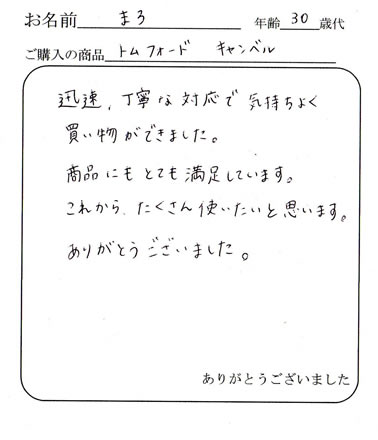 お名前 まろ 年齢 30 歳代
ご購入の商品 トムフォード キャンベル
迅速、丁寧な対応で気持ちよく
買い物ができました。
商品にもとても満足しています。
これから、たくさん使いたいと思います。
ありがとうございました。
ありがとうございました